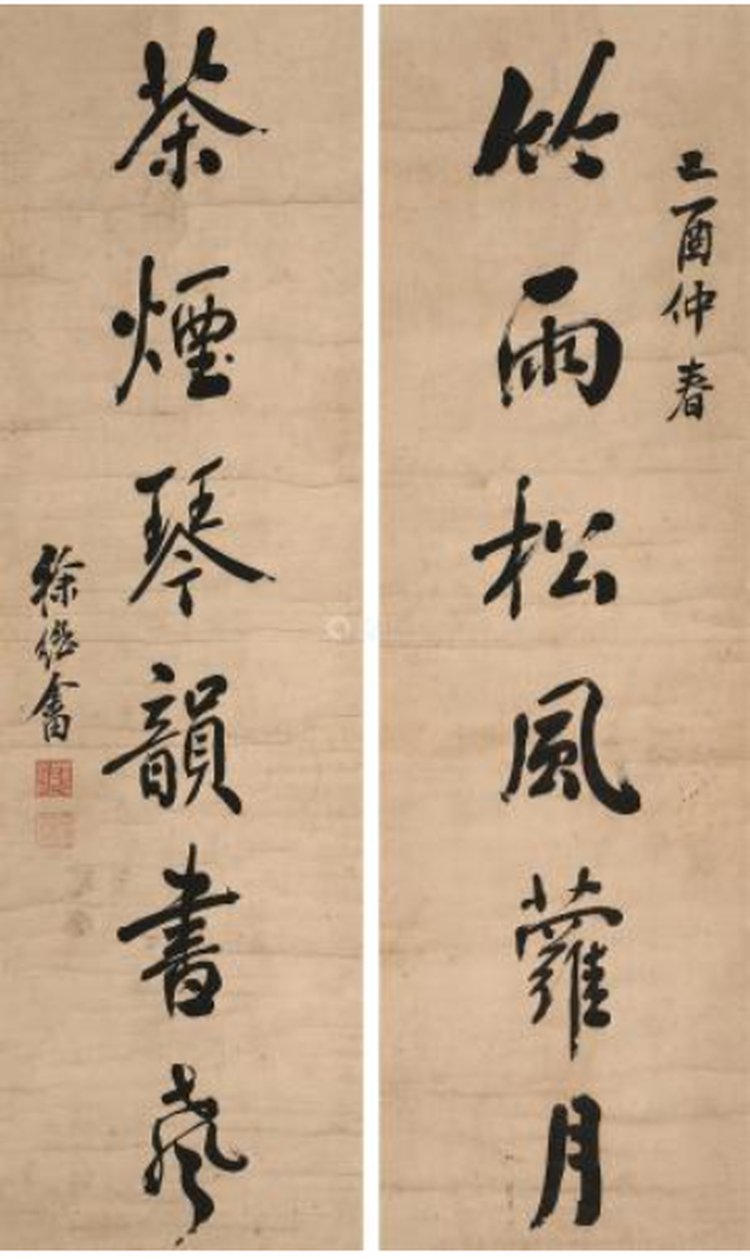 己酉仲春
竹雨松風蘿月
茶煙琴韻書聲
徐繼畬